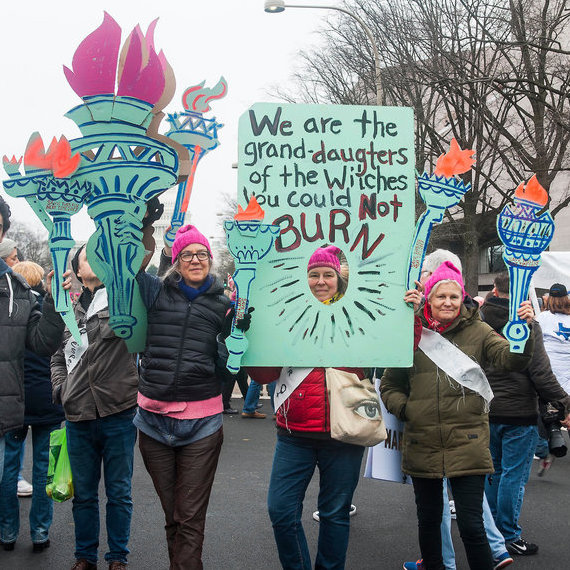 We are the
grand-daugters
of the Witches
You could Not
BURN